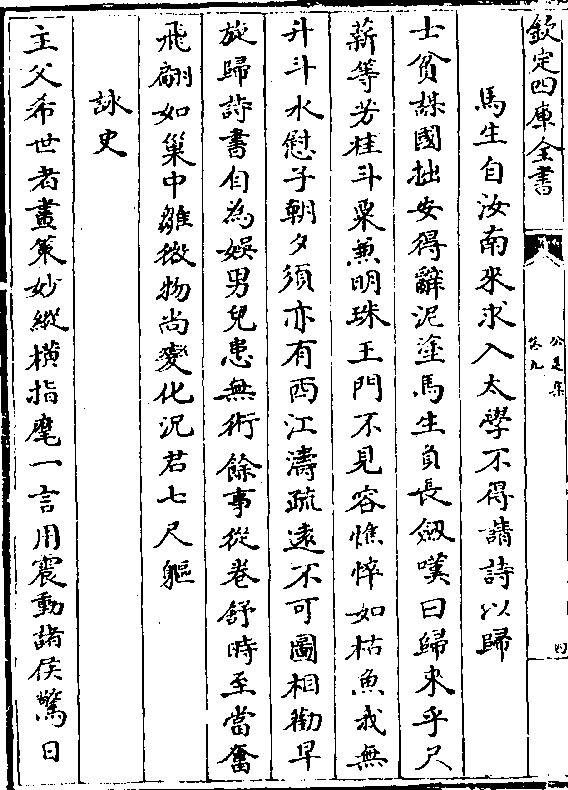 欽定四庫全書
公是集
卷九
四
馬生自汝南來求入太學不得請詩以歸
士貧謀國拙安得辭泥塗馬生負長劔嘆曰歸來乎尺
薪等芳桂斗粟兼明珠王門不見容憔悴如枯魚我無
升斗水慰子朝夕須亦有西江濤疏遠不可圖相勸早
旋歸詩書自為娛男兒患無術餘事從卷舒時至當奮
飛翩如巢中雛微物尚變化況君七尺軀
詠史
主父希世者畫策妙縱橫指麾一言用震動諸侯驚日